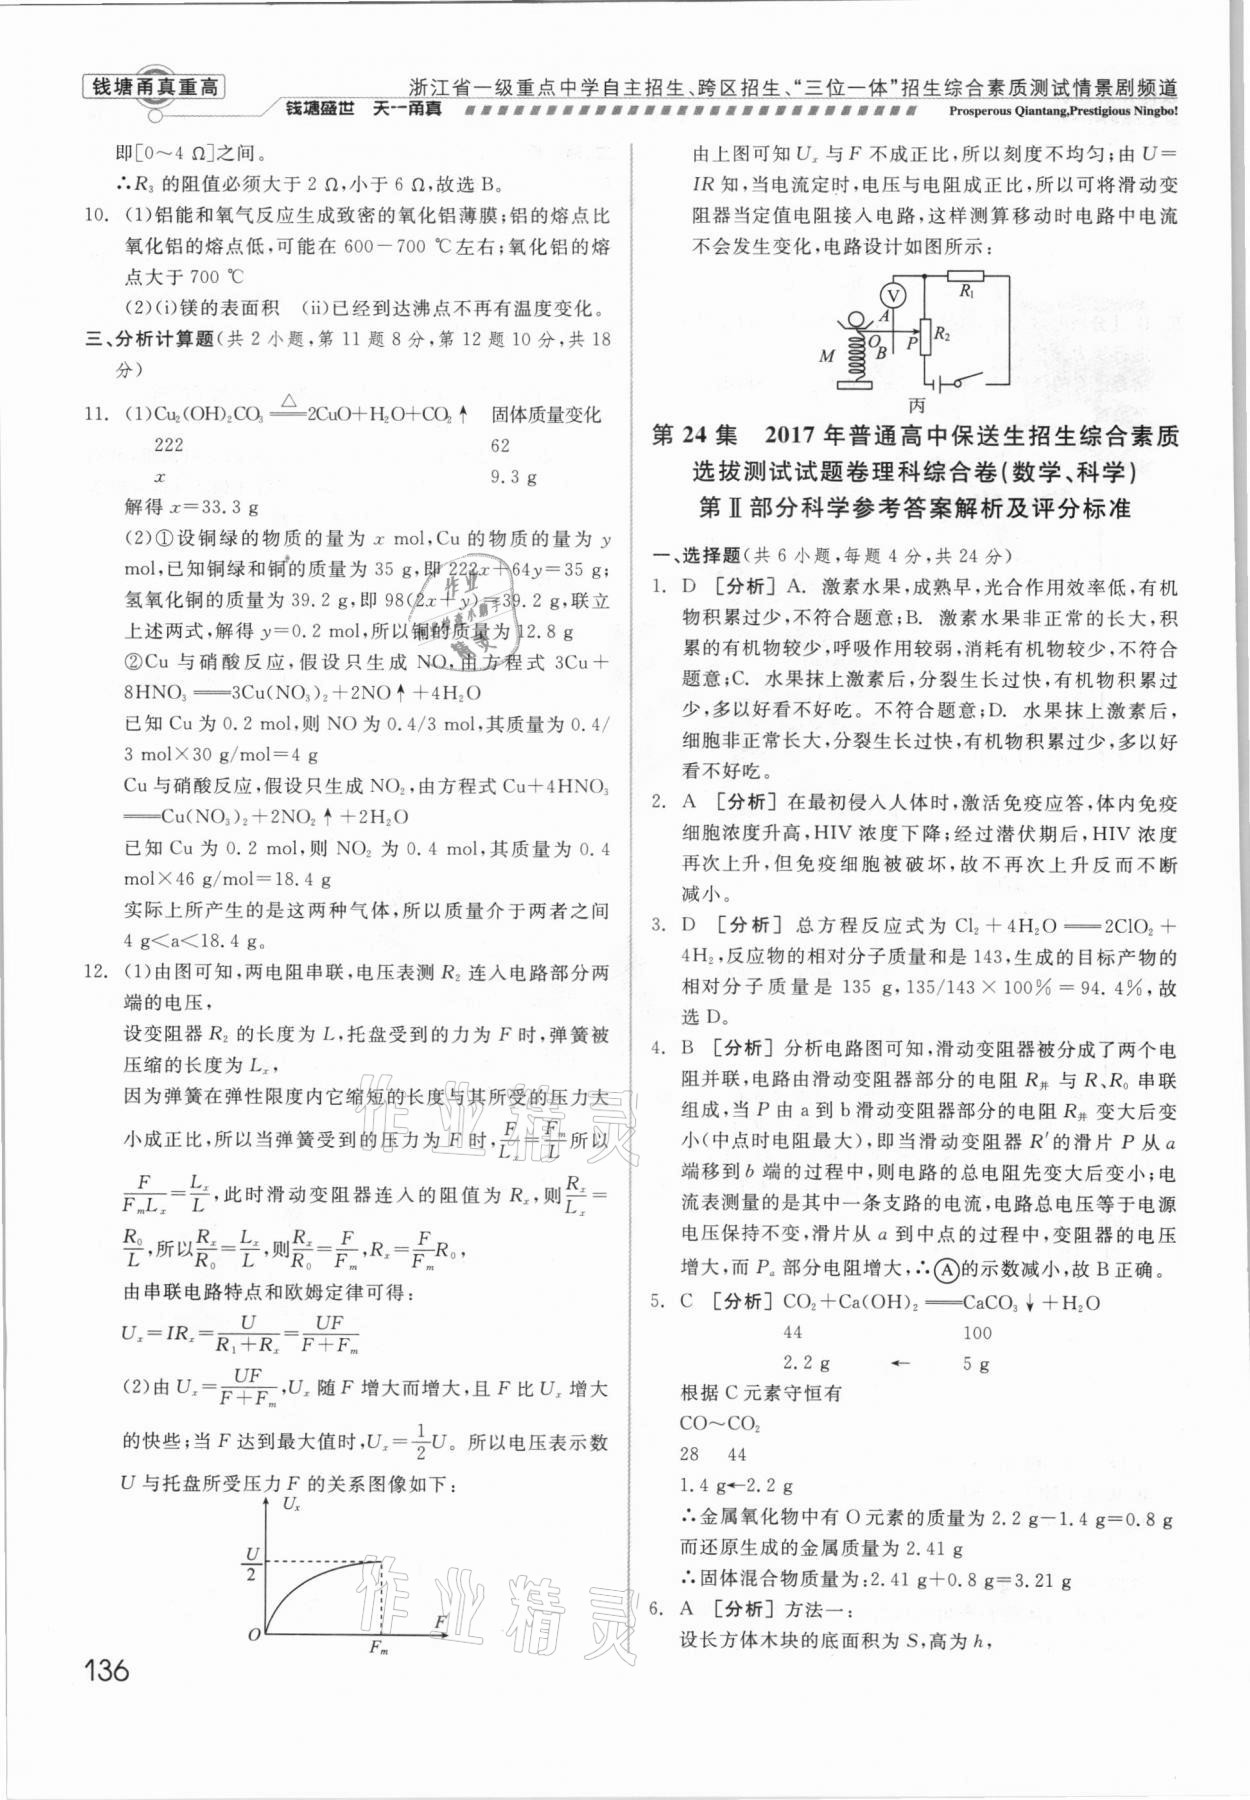 钱塘甬真重高
浙江省一级重点中学自主招生、跨区招生、“三位一体”招生综合素质测试情景剧频道
钱塘盛世 天一甬真
Prosperous Qiantang,Prestigious Ningbo!
即[0～4 Ω]之间。
∴R₃ 的阻值必须大于 2 Ω,小于 6 Ω,故选 B。
10. (1)铝能和氧气反应生成致密的氧化铝薄膜;铝的熔点比
氧化铝的熔点低,可能在 600－700 ℃左右;氧化铝的熔
点大于 700 ℃
(2)(i)镁的表面积 (ii)已经到达沸点不再有温度变化。
三、分析计算题(共 2 小题,第 11 题 8 分,第 12 题 10 分,共 18
分)
11. (1)Cu₂(OH)₂CO₃ ══△══ 2CuO+H₂O+CO₂↑ 固体质量变化
222 62
x 9.3 g
解得 x=33.3 g
(2)①设铜绿的物质的量为 x mol,Cu 的物质的量为 y
mol,已知铜绿和铜的质量为 35 g,即 222x+64y=35 g;
氢氧化铜的质量为 39.2 g,即 98(2x+y)=39.2 g,联立
上述两式,解得 y=0.2 mol,所以铜的质量为 12.8 g
②Cu 与硝酸反应,假设只生成 NO,由方程式 3Cu+
8HNO₃ ══ 3Cu(NO₃)₂+2NO↑+4H₂O
已知 Cu 为 0.2 mol,则 NO 为 0.4/3 mol,其质量为 0.4/
3 mol×30 g/mol=4 g
Cu 与硝酸反应,假设只生成 NO₂,由方程式 Cu+4HNO₃
══Cu(NO₃)₂+2NO₂↑+2H₂O
已知 Cu 为 0.2 mol,则 NO₂ 为 0.4 mol,其质量为 0.4
mol×46 g/mol=18.4 g
实际上所产生的是这两种气体,所以质量介于两者之间
4 g<a<18.4 g。
12. (1)由图可知,两电阻串联,电压表测 R₂ 连入电路部分两
端的电压,
设变阻器 R₂ 的长度为 L,托盘受到的力为 F 时,弹簧被
压缩的长度为 Lₓ,
因为弹簧在弹性限度内它缩短的长度与其所受的压力大
小成正比,所以当弹簧受到的压力为 F 时,F/Lₓ=Fₘ/L 所以
F/FₘLₓ=Lₓ/L,此时滑动变阻器连入的阻值为 Rₓ,则 Rₓ/Lₓ=
R₀/L,所以 Rₓ/R₀=Lₓ/L,则 Rₓ/R₀=F/Fₘ,Rₓ=F/Fₘ R₀,
由串联电路特点和欧姆定律可得:
Uₓ=IRₓ=U/(R₁+Rₓ)=UF/(F+Fₘ)
(2)由 Uₓ=UF/(F+Fₘ),Uₓ 随 F 增大而增大,且 F 比 Uₓ 增大
的快些;当 F 达到最大值时,Uₓ=1/2 U。所以电压表示数
U 与托盘所受压力 F 的关系图像如下:
Uₓ
U/2
O
Fₘ
F
136
由上图可知 Uₓ 与 F 不成正比,所以刻度不均匀;由 U=
IR 知,当电流定时,电压与电阻成正比,所以可将滑动变
阻器当定值电阻接入电路,这样测算移动时电路中电流
不会发生变化,电路设计如图所示:
V
R₁
A
O
P
R₂
M
B
丙
第 24 集 2017 年普通高中保送生招生综合素质
选拔测试试题卷理科综合卷(数学、科学)
第Ⅱ部分科学参考答案解析及评分标准
一、选择题(共 6 小题,每题 4 分,共 24 分)
1. D [分析] A. 激素水果,成熟早,光合作用效率低,有机
物积累过少,不符合题意;B. 激素水果非正常的长大,积
累的有机物较少,呼吸作用较弱,消耗有机物较少,不符合
题意;C. 水果抹上激素后,分裂生长过快,有机物积累过
少,多以好看不好吃。不符合题意;D. 水果抹上激素后,
细胞非正常长大,分裂生长过快,有机物积累过少,多以好
看不好吃。
2. A [分析] 在最初侵入人体时,激活免疫应答,体内免疫
细胞浓度升高,HIV 浓度下降;经过潜伏期后,HIV 浓度
再次上升,但免疫细胞被破坏,故不再次上升反而不断
减小。
3. D [分析] 总方程反应式为 Cl₂+4H₂O ══ 2ClO₂+
4H₂,反应物的相对分子质量和是 143,生成的目标产物的
相对分子质量是 135 g,135/143×100%=94.4%,故
选 D。
4. B [分析] 分析电路图可知,滑动变阻器被分成了两个电
阻并联,电路由滑动变阻器部分的电阻 R并 与 R、R₀ 串联
组成,当 P 由 a 到 b 滑动变阻器部分的电阻 R并 变大后变
小(中点时电阻最大),即当滑动变阻器 R′的滑片 P 从 a
端移到 b 端的过程中,则电路的总电阻先变大后变小;电
流表测量的是其中一条支路的电流,电路总电压等于电源
电压保持不变,滑片从 a 到中点的过程中,变阻器的电压
增大,而 Pₐ 部分电阻增大,∴Ⓐ的示数减小,故 B 正确。
5. C [分析] CO₂+Ca(OH)₂ ══ CaCO₃↓+H₂O
44 100
2.2 g ← 5 g
根据 C 元素守恒有
CO～CO₂
28 44
1.4 g←2.2 g
∴金属氧化物中有 O 元素的质量为 2.2 g－1.4 g=0.8 g
而还原生成的金属质量为 2.41 g
∴固体混合物质量为:2.41 g+0.8 g=3.21 g
6. A [分析] 方法一:
设长方体木块的底面积为 S,高为 h,
作业精灵
作业精灵